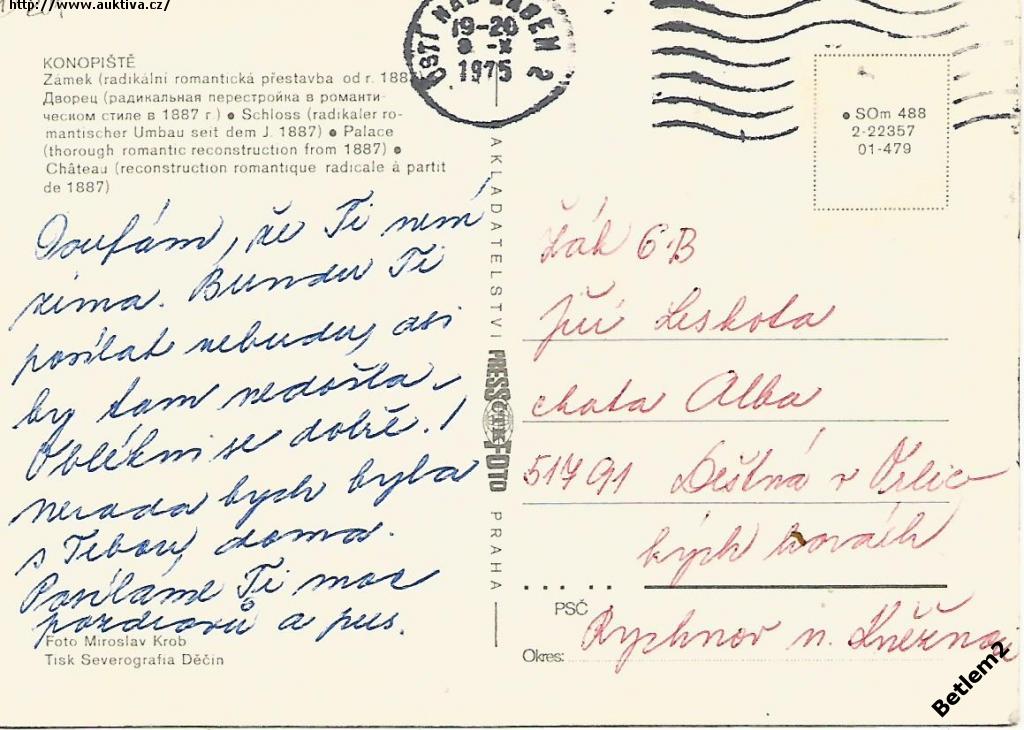 http://www.auktiva.cz/
ÚSTÍ NAD LABEM 2
19-20
9.-X
1975
KONOPIŠTĚ
Zámek (radikální romantická přestavba od r. 1887)
Дворец (радикальная перестройка в романти-
ческом стиле в 1887 г.) ● Schloss (radikaler ro-
mantischer Umbau seit dem J. 1887) ● Palace
(thorough romantic reconstruction from 1887) ●
Château (reconstruction romantique radicale à partit
de 1887)
● SOm 488
2-22357
01-479
Doufám, že Ti není
zima. Bundu Ti
posílat nebudu, asi
by tam nedošla.
Oblékni se dobře!
nerada bych byla
s Tebou doma.
Posíláme Ti moc
pozdravů a pus.
Foto Miroslav Krob
Tisk Severografia Děčín
NAKLADATELSTVÍ PRESSFOTO PRAHA
ČTK
Žák 6.B
Jiří Leskota
chata Alba
51791 Deštná v Orlic
kých horách
PSČ
Okres: Rychnov n. Kněžnou
Betlem2